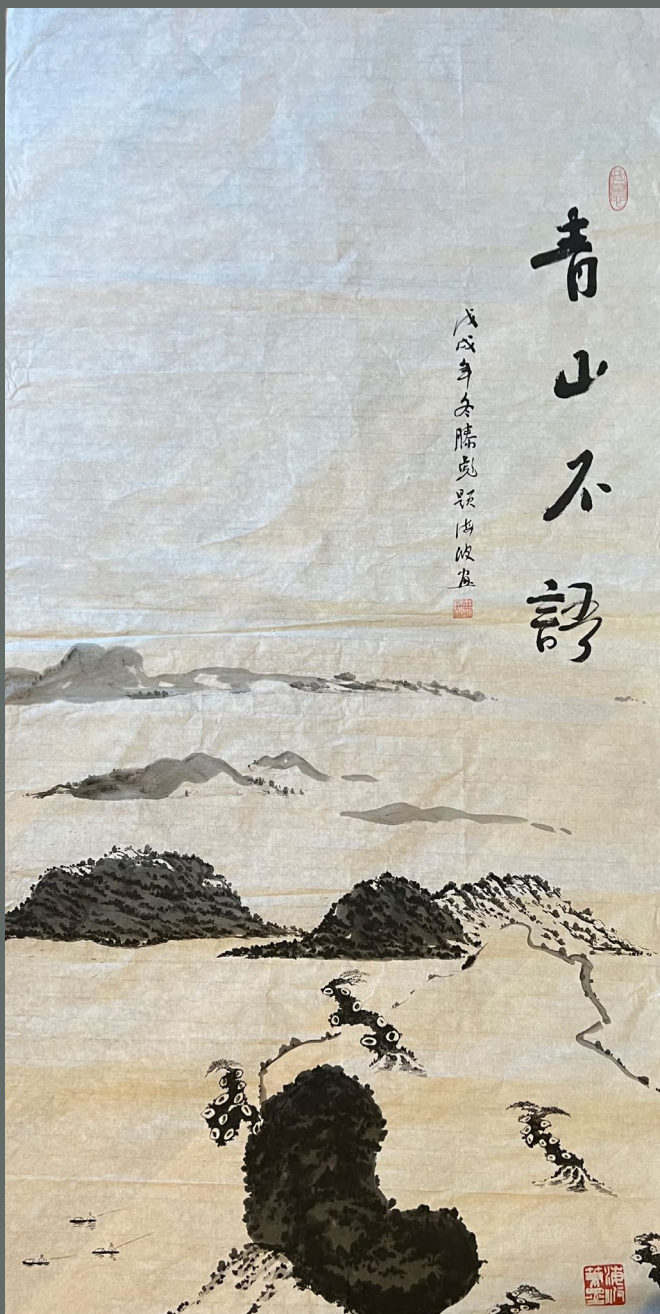 青山不語
戊戌年冬滕彪题海波画